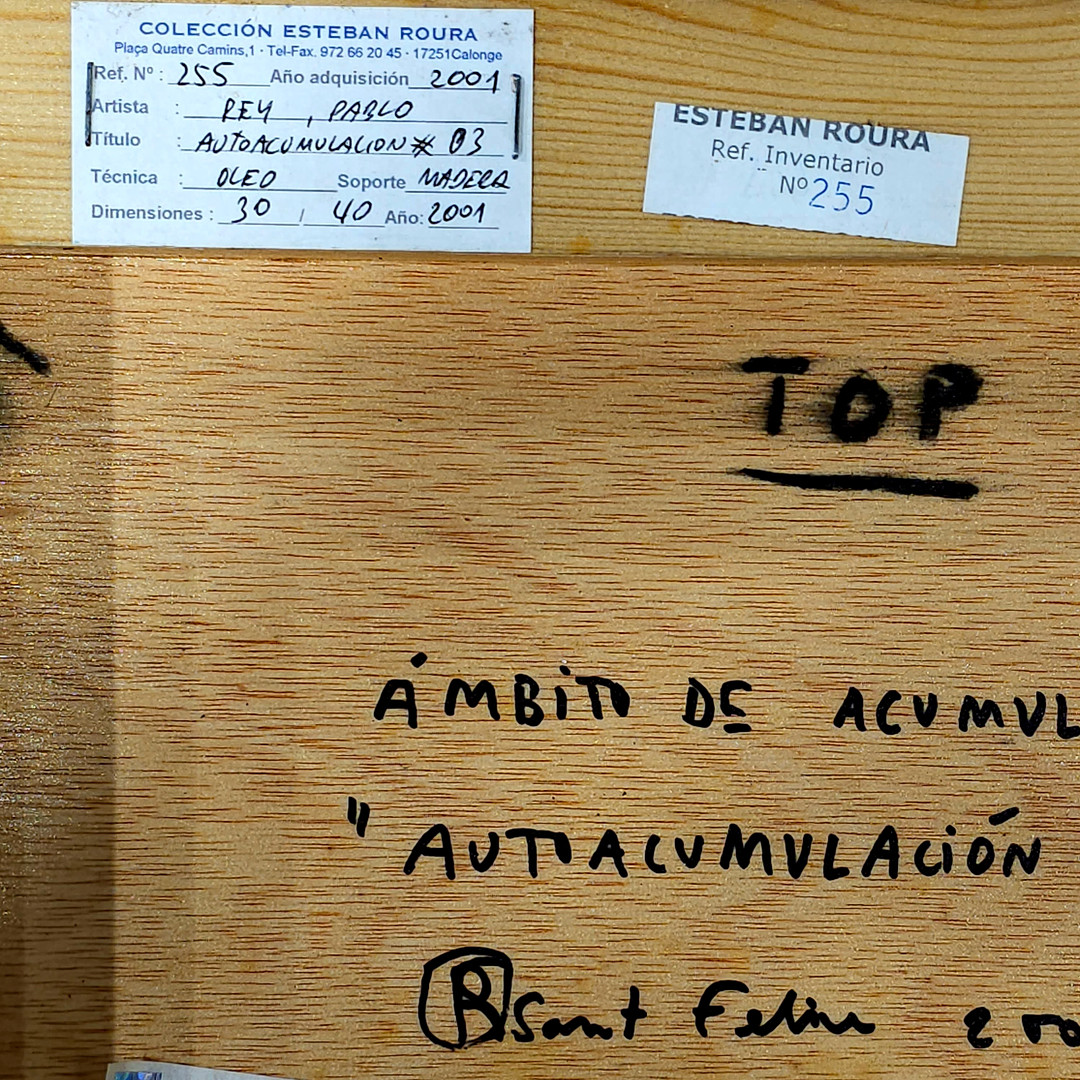 COLECCIÓN ESTEBAN ROURA
Plaça Quatre Camins,1 · Tel-Fax. 972 66 20 45 · 17251Calonge
Ref. Nº : 255 Año adquisición 2001
Artista : REY , PABLO
Título : AUTOACUMULACION # 03
Técnica : OLEO Soporte MADERA
Dimensiones : 30 / 40 Año: 2001
ESTEBAN ROURA
Ref. Inventario
Nº 255
TOP
ÁMBITO DE ACUMUL
" AUTOACUMULACIÓN
R Sant Feliu 200